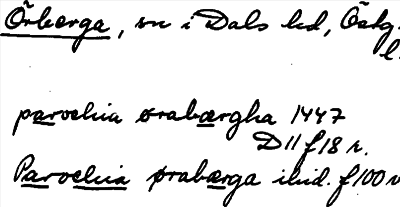 Örberga, sn i Dals hd, Östg.
l.
parochia ørabærgha 1447
D 11 f 18 r.
Parochia ørabærga ibid. f 100 v